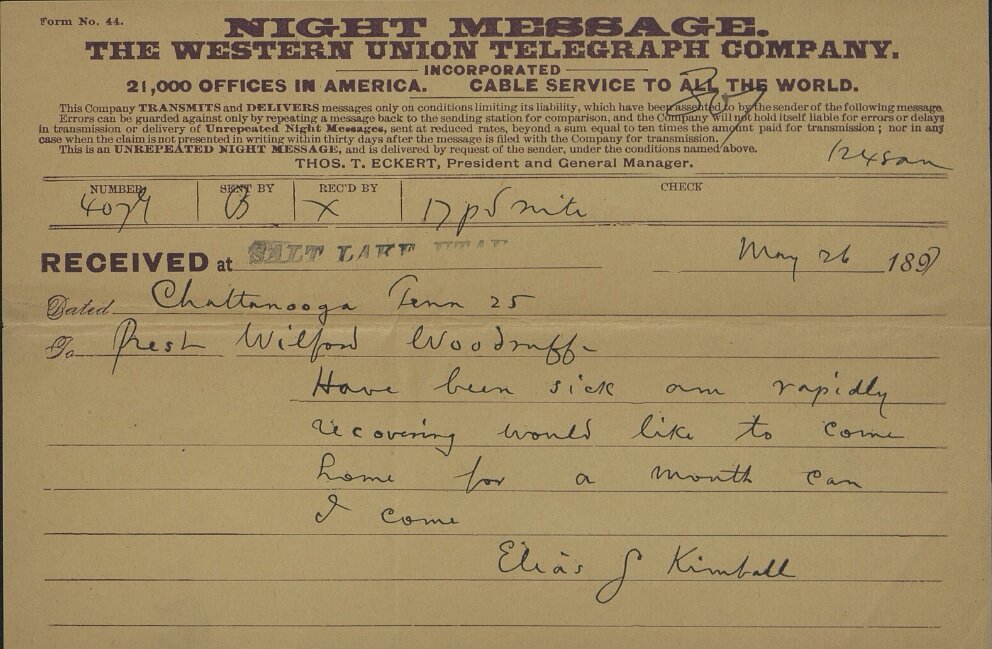 Form No. 44.
NIGHT MESSAGE.
THE WESTERN UNION TELEGRAPH COMPANY.
INCORPORATED
21,000 OFFICES IN AMERICA. CABLE SERVICE TO ALL THE WORLD.
This Company TRANSMITS and DELIVERS messages only on conditions limiting its liability, which have been assented to by the sender of the following message.
Errors can be guarded against only by repeating a message back to the sending station for comparison, and the Company will not hold itself liable for errors or delays
in transmission or delivery of Unrepeated Night Messages, sent at reduced rates, beyond a sum equal to ten times the amount paid for transmission; nor in any
case when the claim is not presented in writing within thirty days after the message is filed with the Company for transmission.
This is an UNREPEATED NIGHT MESSAGE, and is delivered by request of the sender, under the conditions named above.
THOS. T. ECKERT, President and General Manager.
NUMBER SENT BY REC'D BY CHECK
B X 17 pd nite
RECEIVED at SALT LAKE UTAH May 26 1897
Dated Chattanooga Tenn 25
To Prest Wilford Woodruff
Have been sick am rapidly
recovering would like to come
home for a month can
I come
Elias S Kimball